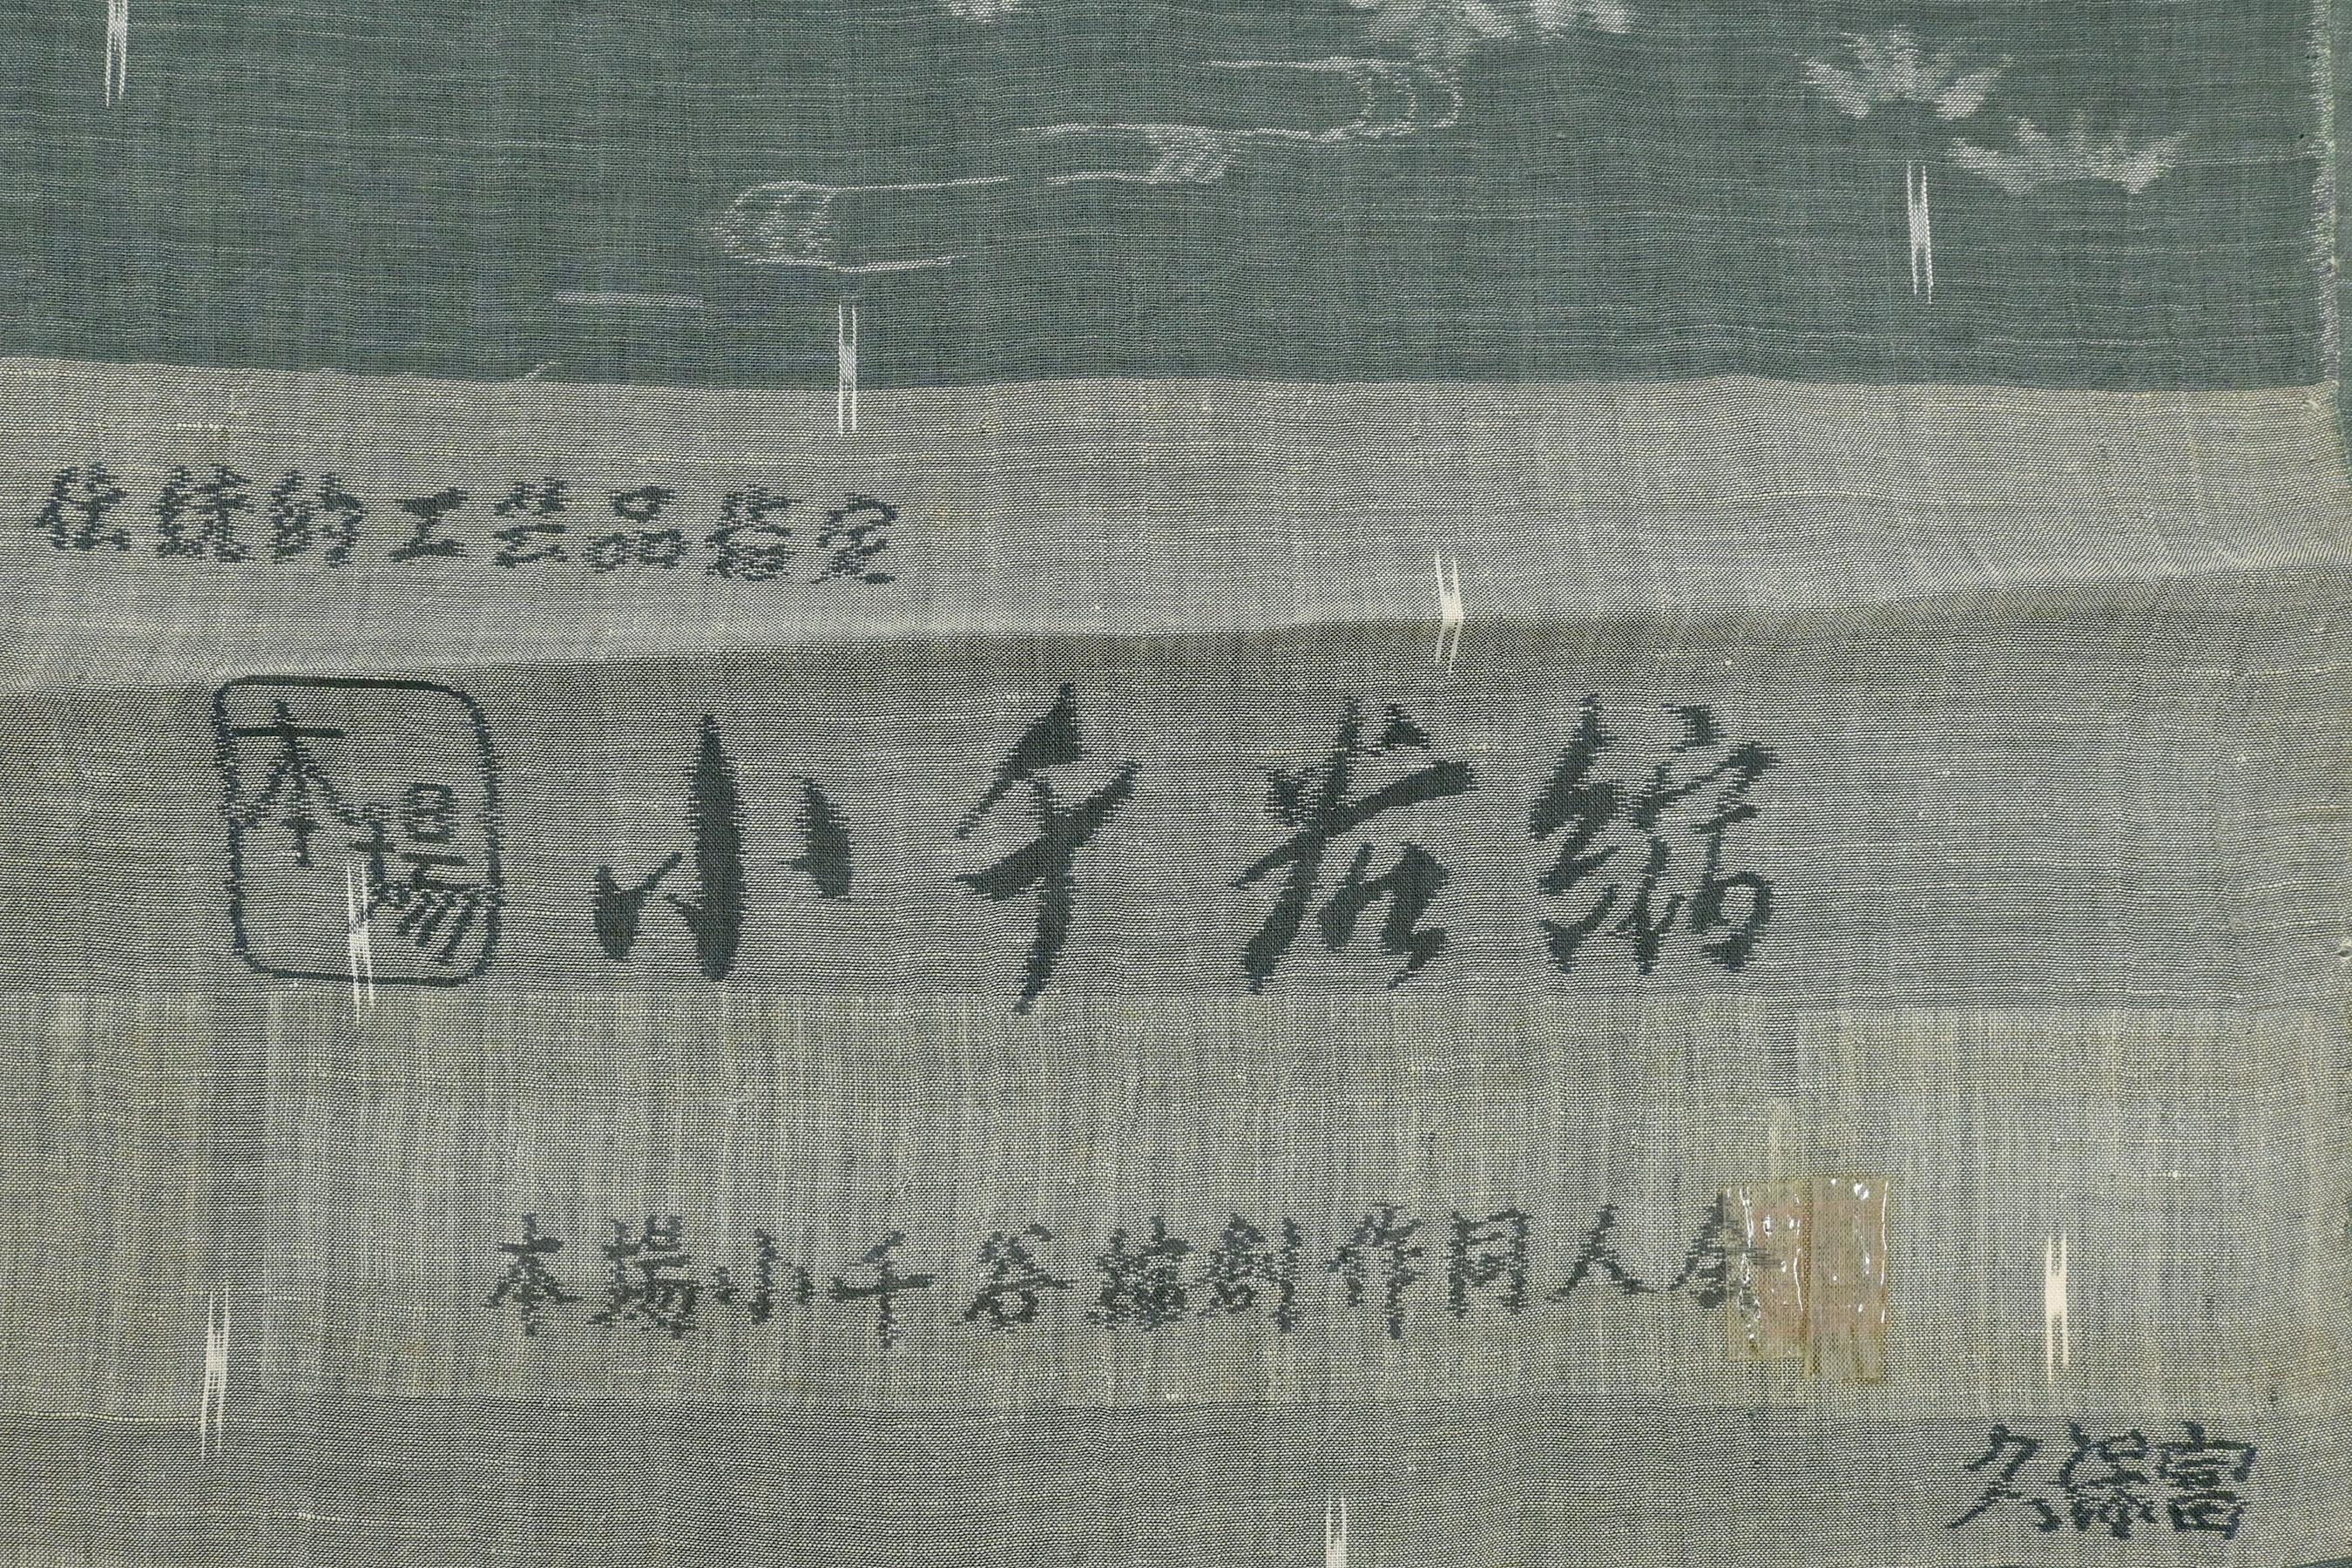 伝統的工芸品指定
本場 小千谷縮
本場小千谷縮創作同人会
久保富